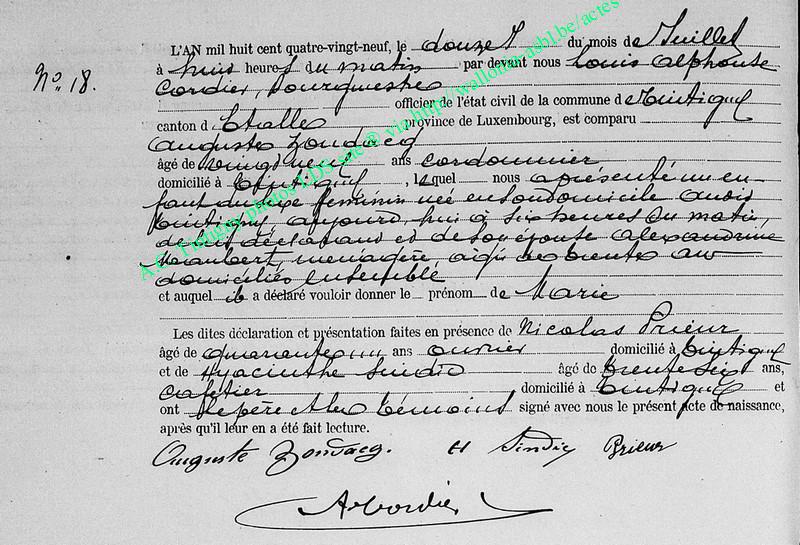 L'AN mil huit cent quatre-vingt-neuf, le douze du mois de Juillet
No. 18.
à huit heures du matin par devant nous Louis Alphonse
Cordier, Bourgmestre
officier de l'état civil de la commune de Tintigny
canton d'Etalle province de Luxembourg, est comparu
Auguste Zondacq
âgé de vingt neuf ans cordonnier
domicilié à Tintigny, lequel nous a présenté un en-
fant du sexe féminin née en son domicile au dit
Tintigny aujourd'hui à six heures du matin,
de lui déclarant et de son épouse Alexandrine
ménagère, âgée de trente ans
domiciliés ensemble
et auquel il a déclaré vouloir donner le prénom de Marie
Les dites déclaration et présentation faites en présence de Nicolas Prieur
âgé de quarante un ans ouvrier domicilié à Tintigny
et de Hyacinthe Sindic âgé de trente six ans,
cafetier domicilié à Tintigny et
ont le père et les témoins signé avec nous le présent acte de naissance,
après qu'il leur en a été fait lecture.
Auguste Zondacq. H Sindic Prieur
A Cordier
A.C. Tintigny photos LDS via http://wallonia-asbl.be/actes